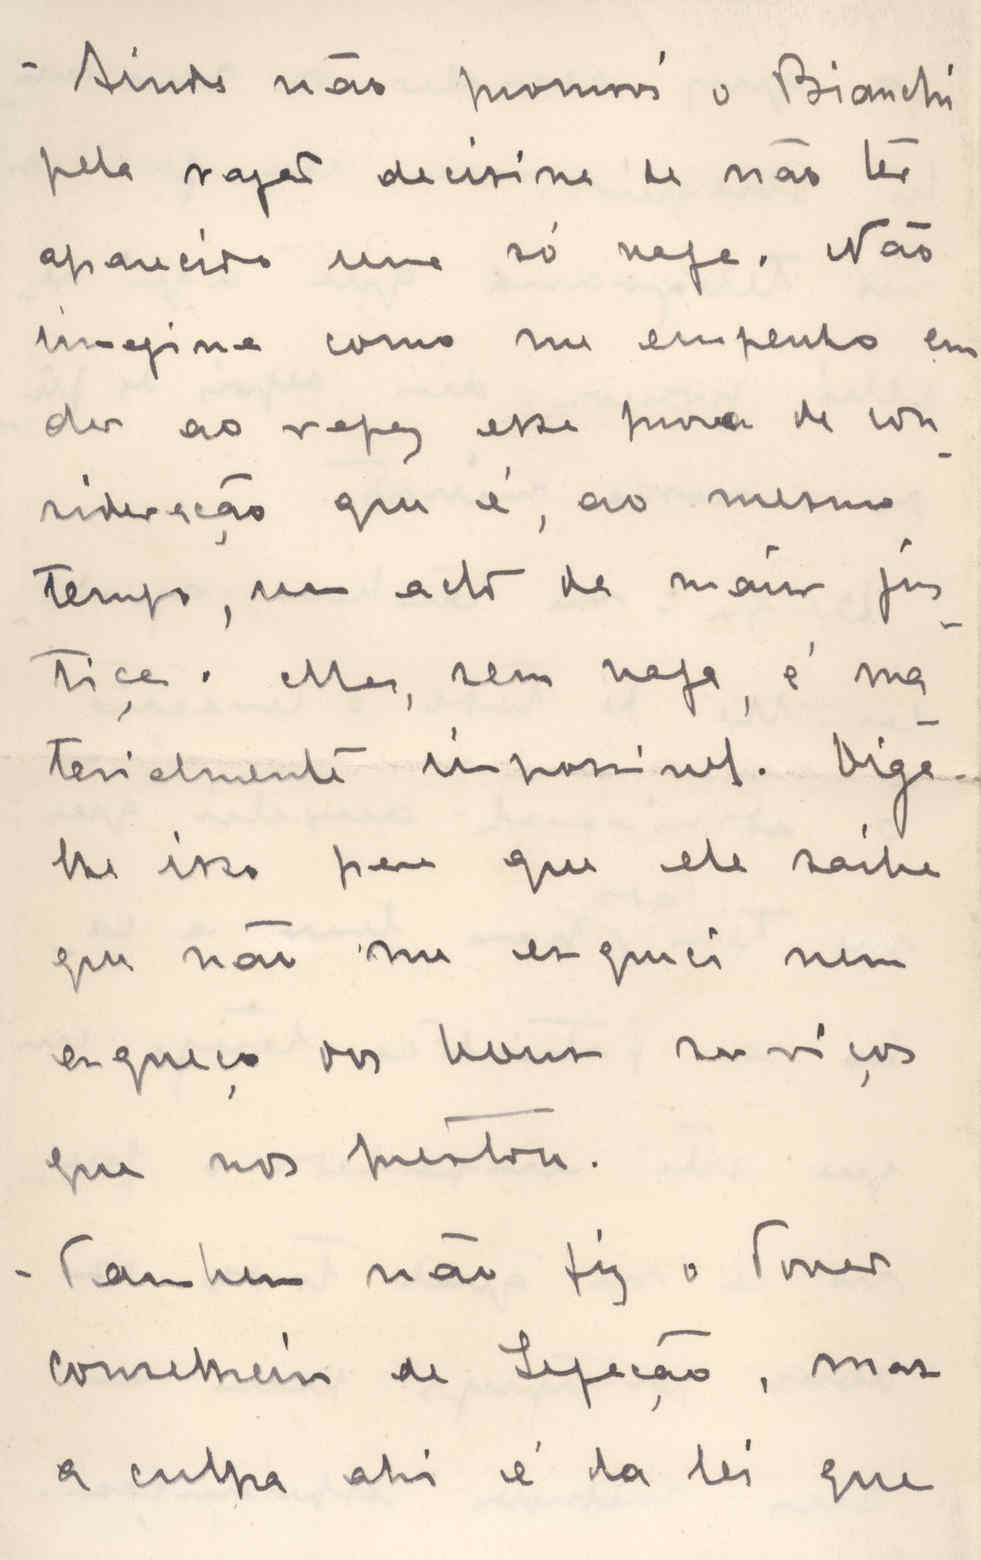 - Ainda não promovi o Bianchi
pela razão decisiva de não ter
aparecido uma só vaga. Não
imagina como me empenho em
dar ao rapaz essa prova de con-
sideração que é, ao mesmo
tempo, um acto da maior jus-
tiça. Mas, sem vaga, é ma
terialmente impossivel. Diga-
lhe isso para que ele saiba
que não me esqueci nem
esqueço os bons serviços
que nos prestou.
- Tambem não fiz o
conselheiro de Legação, mas
a culpa ahi é da lei que